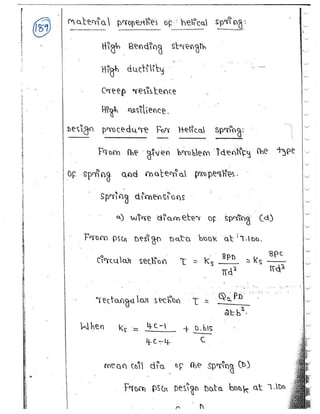 (189)
material properties of helical spring:
High Bending strength
High ductility
Creep resistence
High resilience.
Design procedure For Helical spring:
From the given problem Identify the type
of spring and material properties.
Spring dimensions
a) wire diameter of spring (d)
From PSG Design Data book at 7.100.
Circular section τ = Ks 8PD/πd³ = Ks 8PC/πd²
rectangular section τ = Q₂PD/2tb².
When Ks = 4C-1/4C-4 + 0.615/C
mean coil dia of the spring (D)
From PSG Design Data book at 7.100